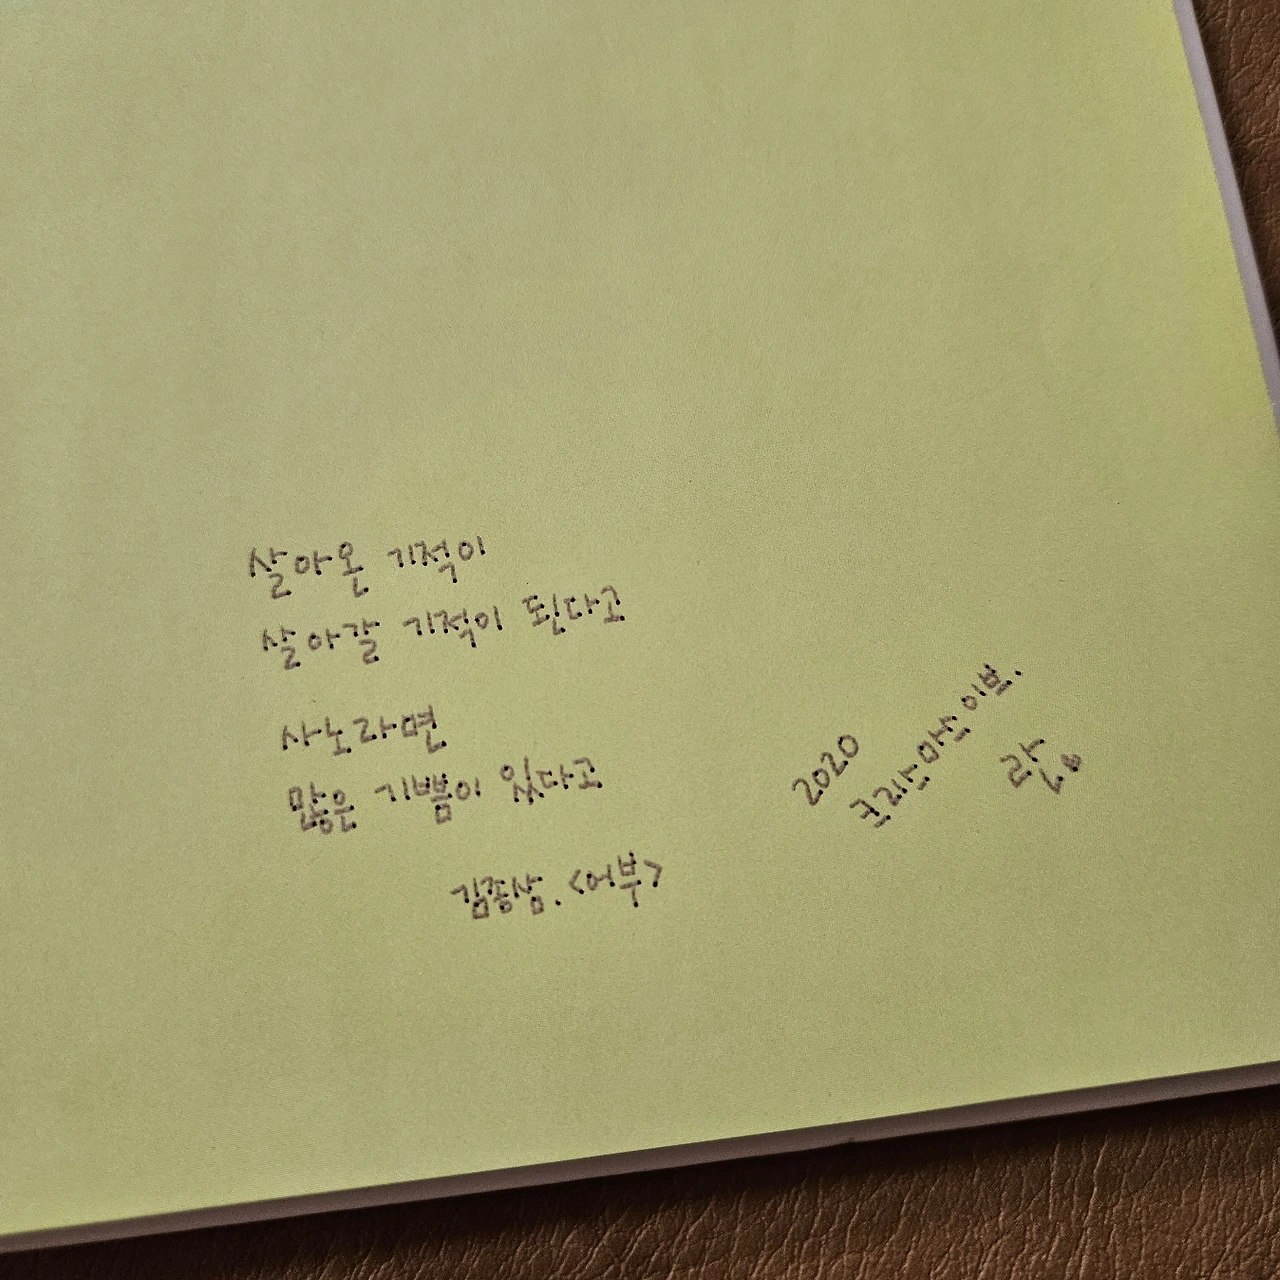 살아온 기적이
살아갈 기적이 된다고
사노라면
많은 기쁨이 있다고
김종삼. <어부>
2020
크리스마스 이브.